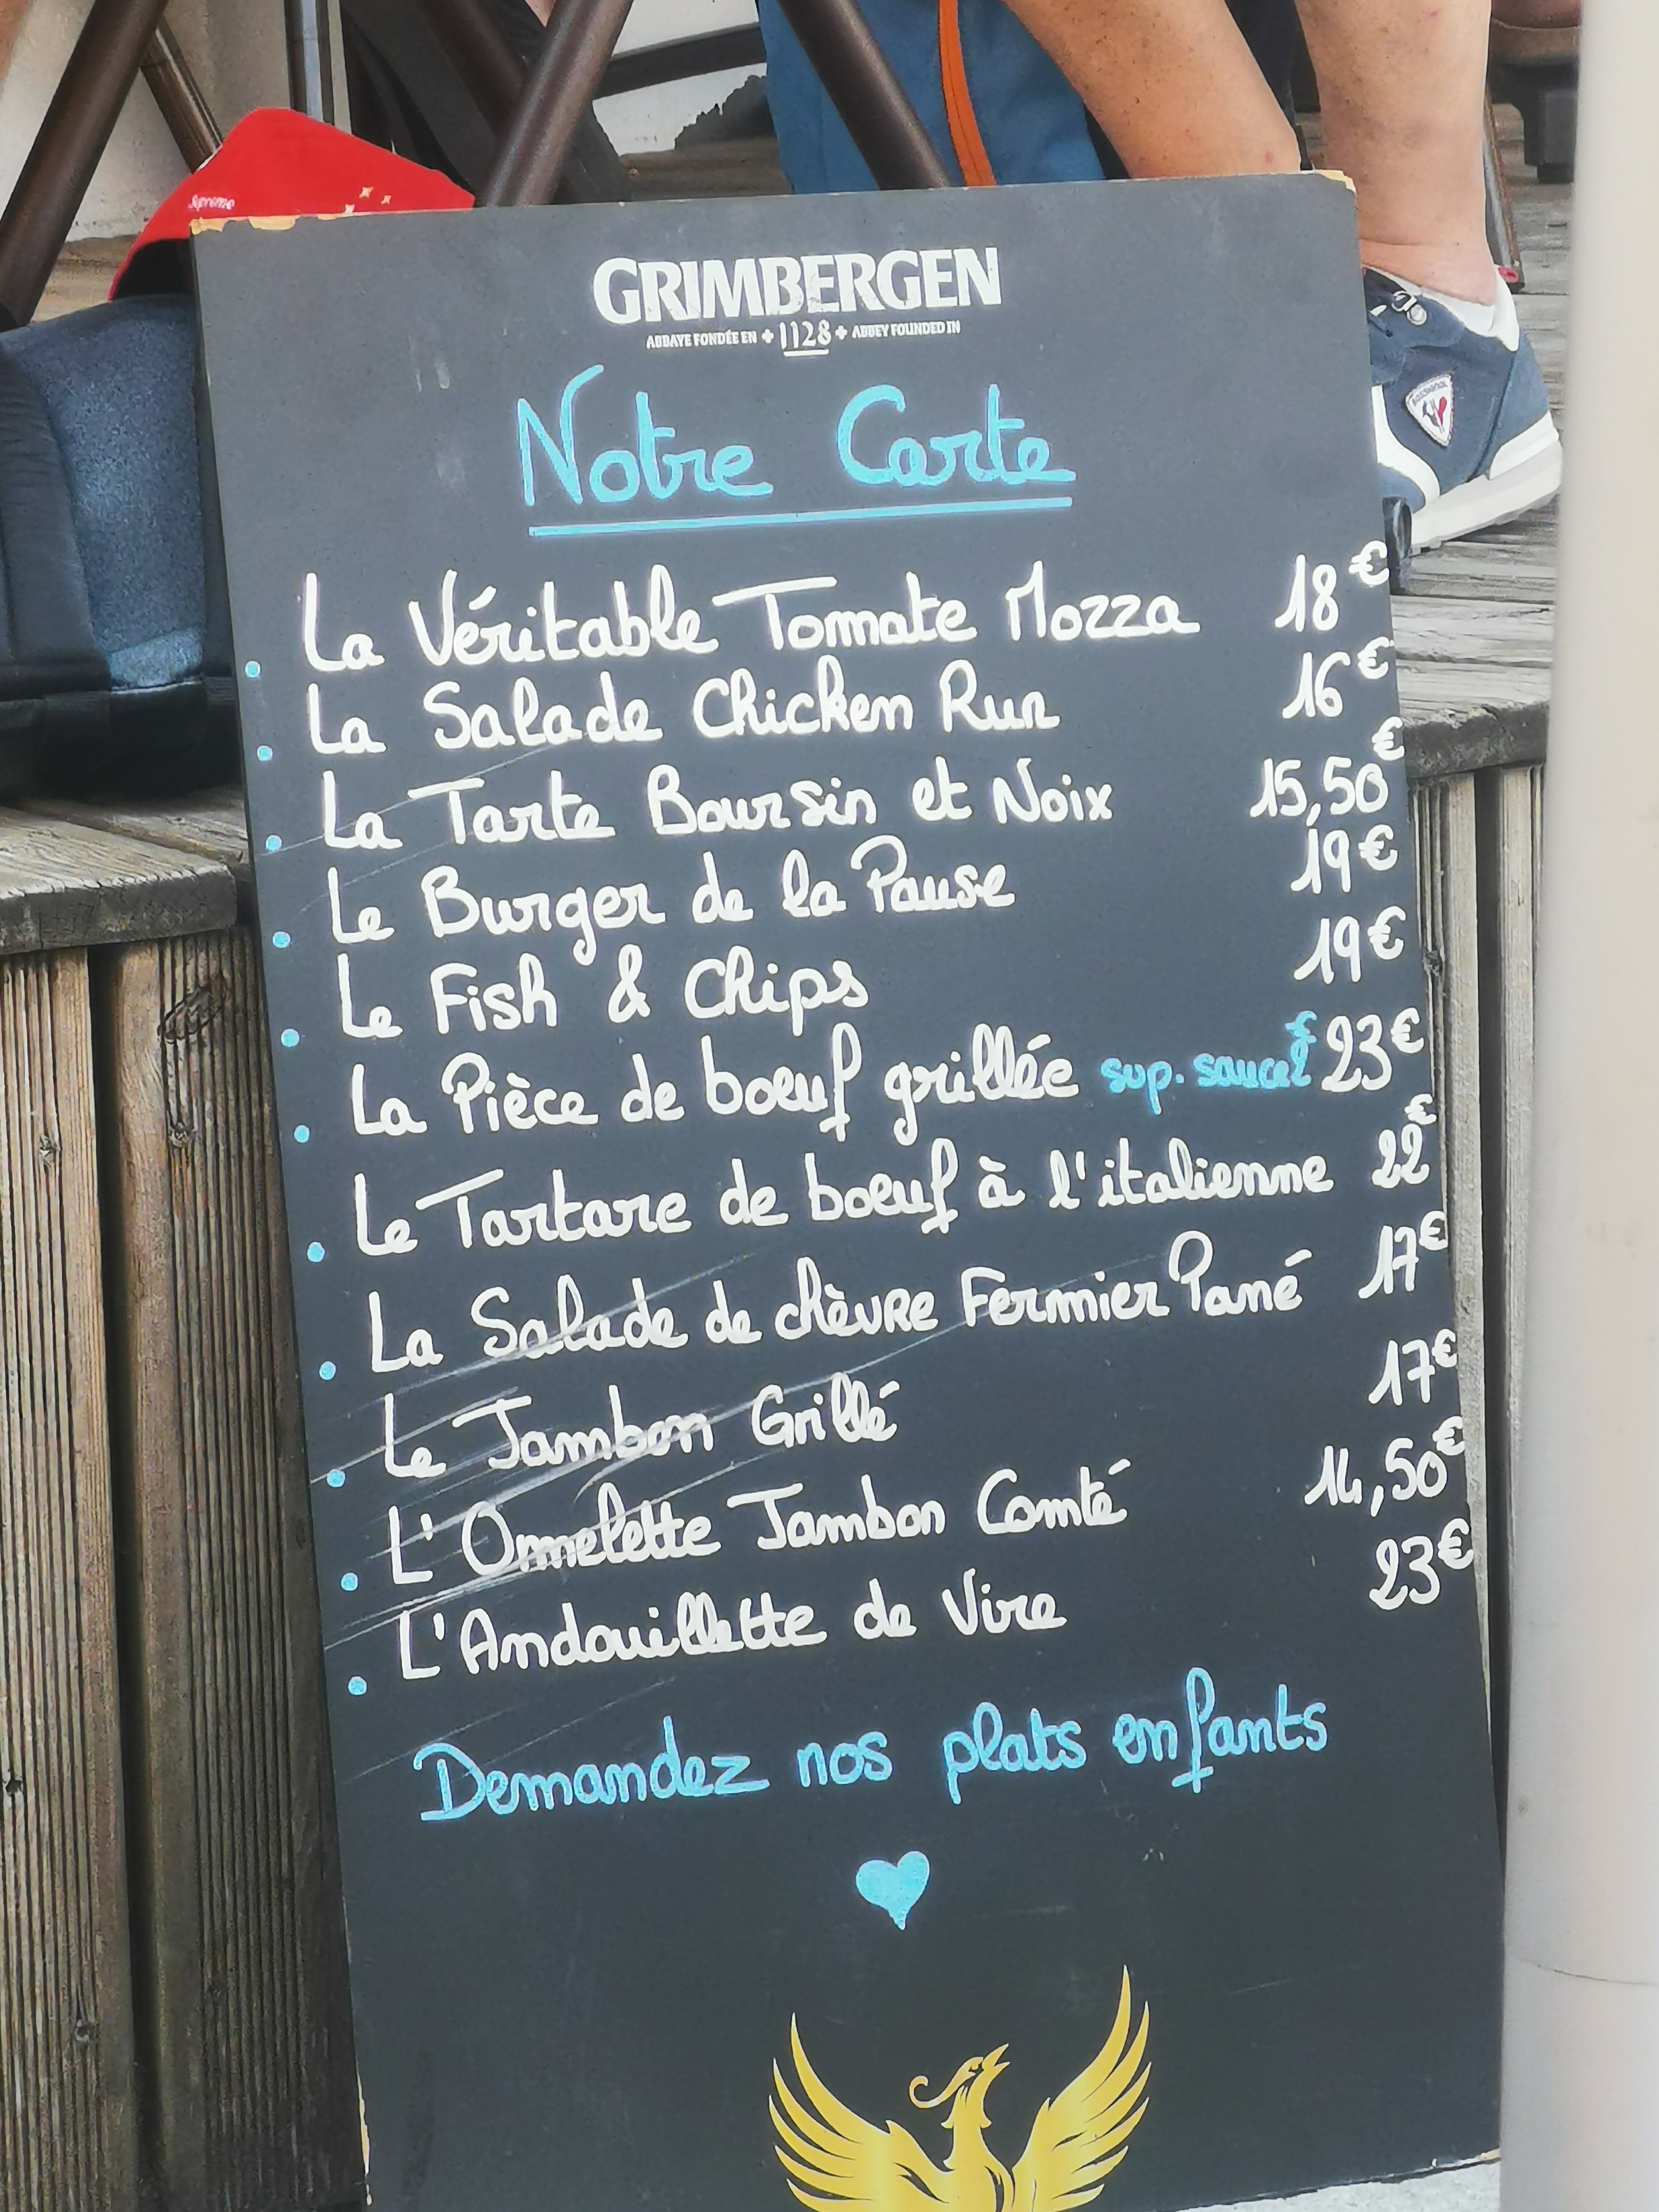 Supreme
GRIMBERGEN
ABBAYE FONDÉE EN + 1128 + ABBEY FOUNDED IN
Notre Carte
. La Véritable Tomate Mozza 18€
. La Salade Chicken Run 16€
. La Tarte Boursin et Noix 15,50€
. Le Burger de la Pause 19€
. Le Fish & Chips 19€
. La Pièce de boeuf grillée sup. sauce 2€ 23€
. Le Tartare de boeuf à l'italienne 22€
. La Salade de chèvre Fermier Pané 17€
. Le Jambon Grillé 17€
. L'Ommelette Jambon Comté 14,50€
. L'Andouillette de Vire 23€
Demandez nos plats enfants
ROSSIGNOL